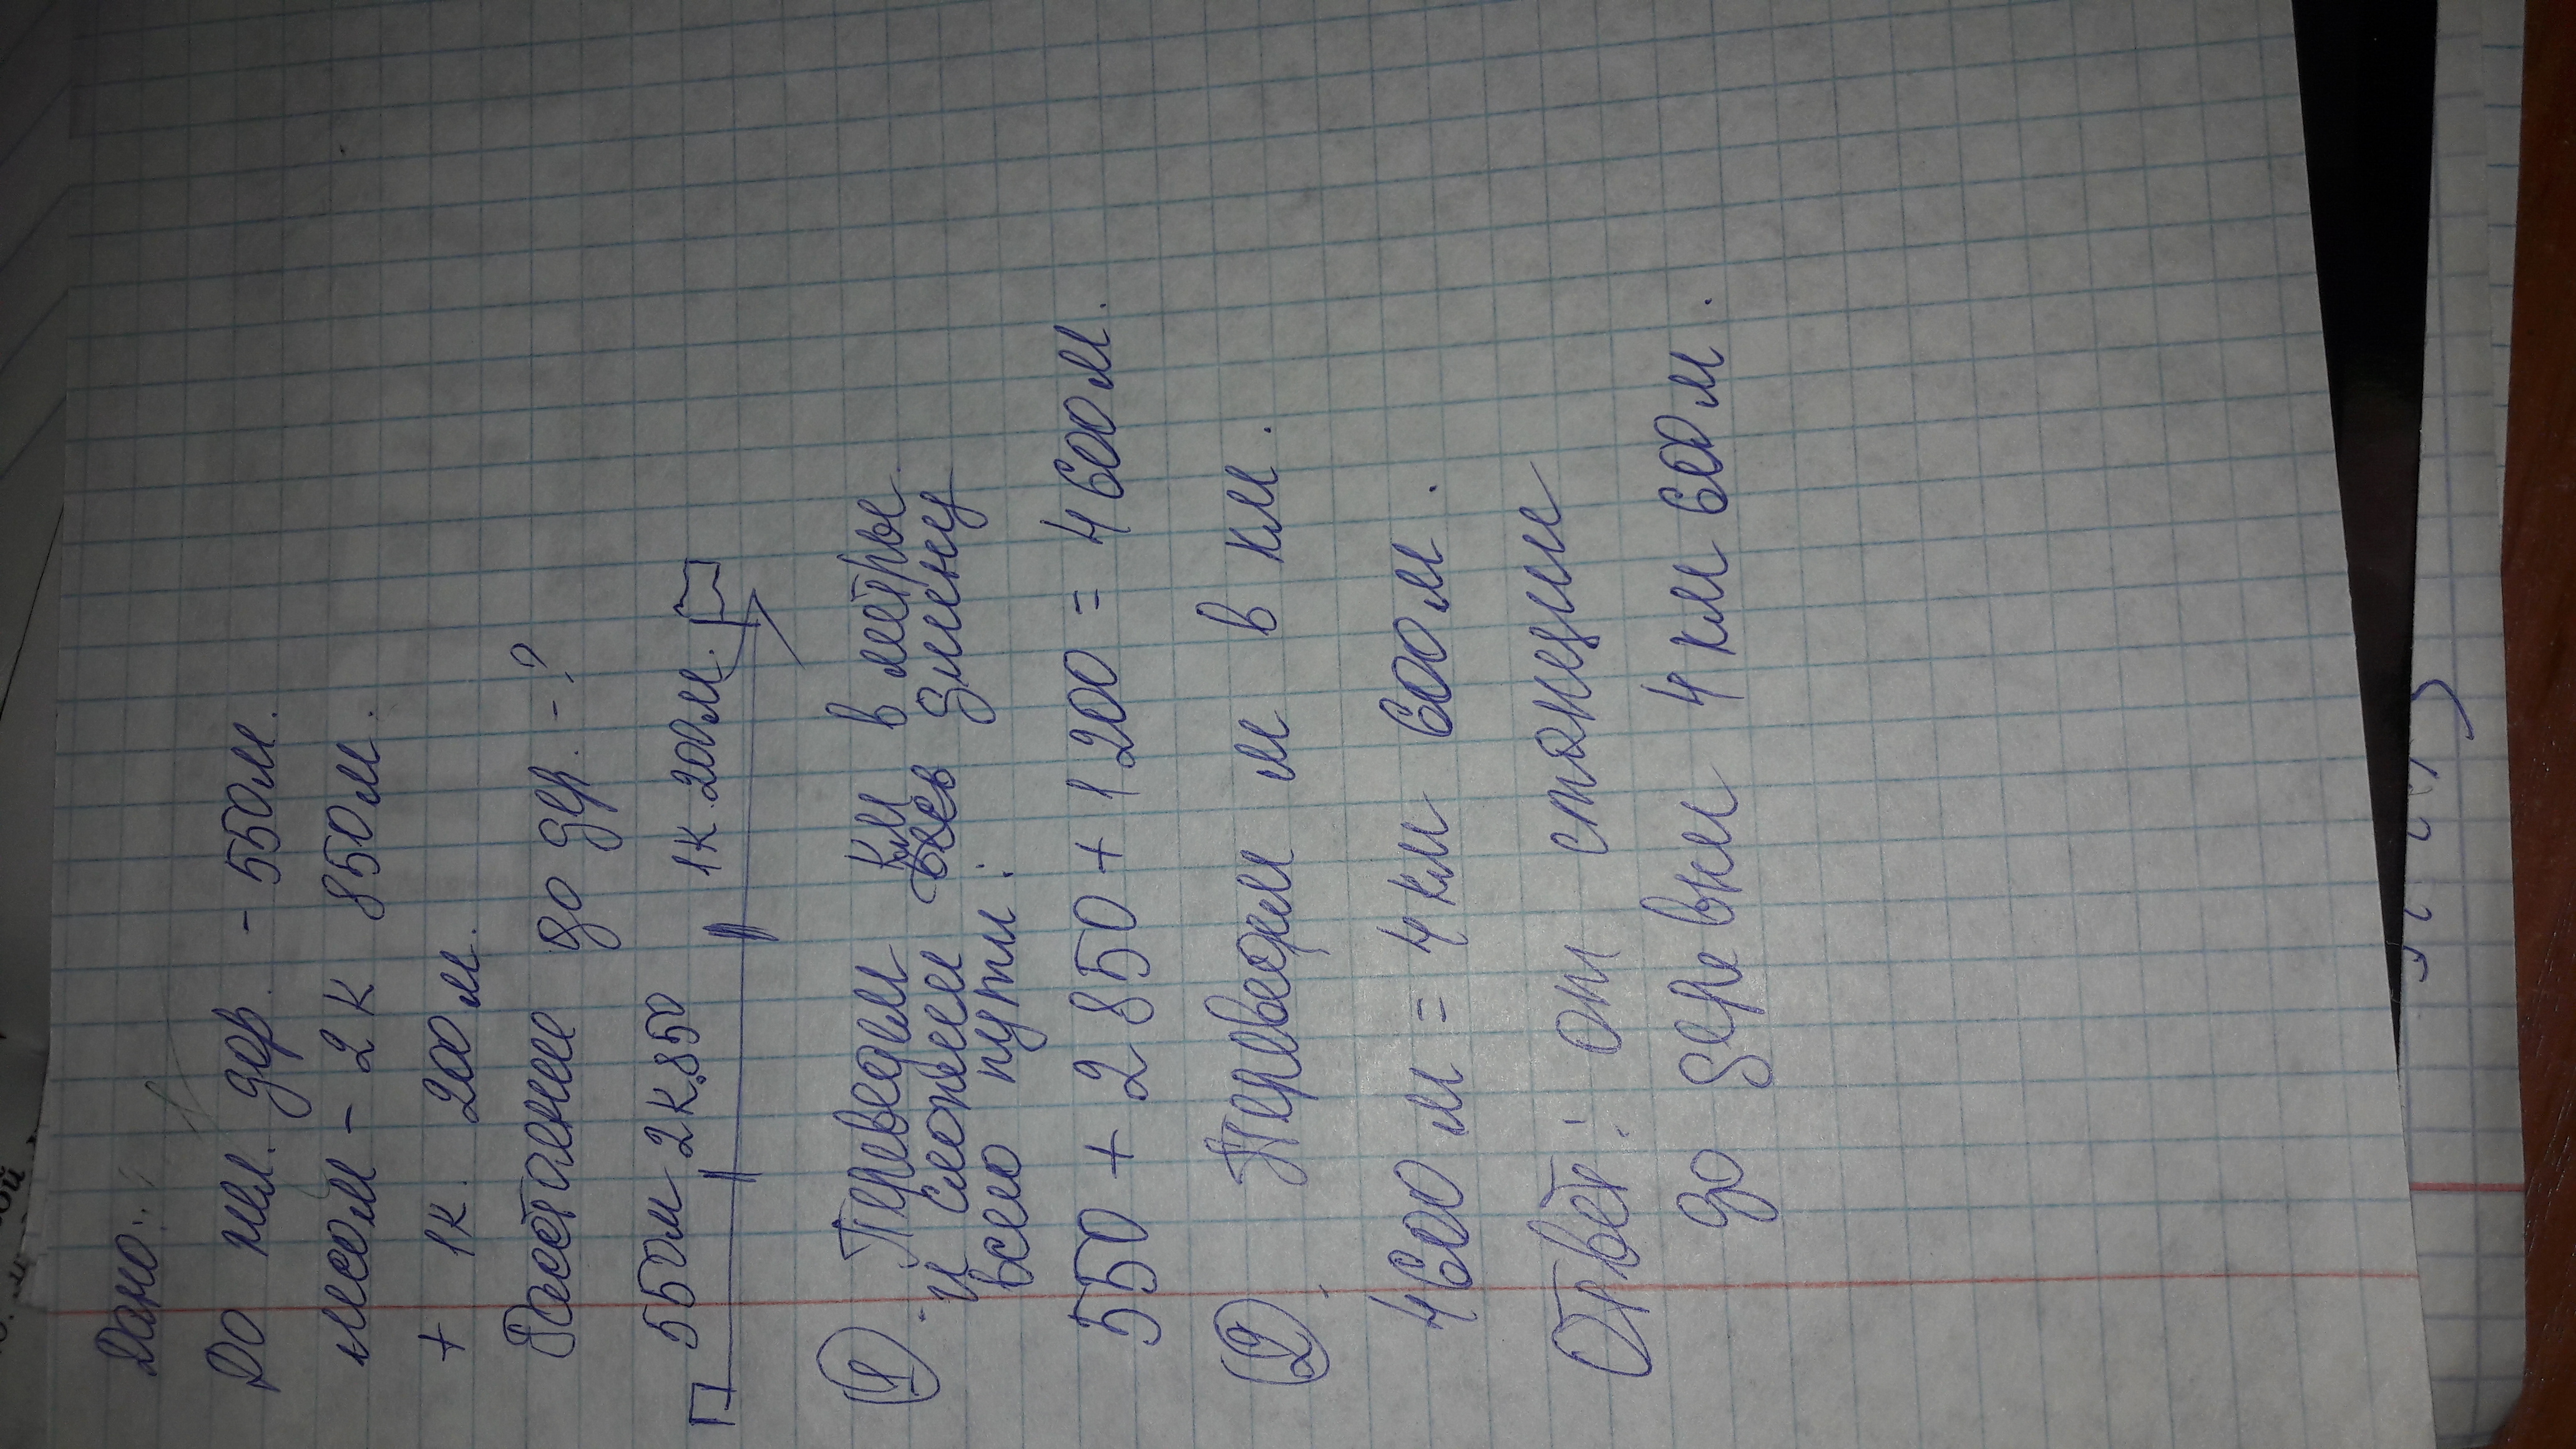 Дано:
До жел. дор. - 550 м.
лесом - 2 к 850 м.
+ 1 к. 200 м.
Расстояние до дер. - ?
550м 2к.850 1к.200м.
① Переведем км в метры.
и сложим всю длину
всего пути:
550 + 2 850 + 1 200 = 4 600 м.
② Переведем м в км.
4600 м = 4 км 600 м.
Ответ: от станции
до деревни 4 км 600 м.